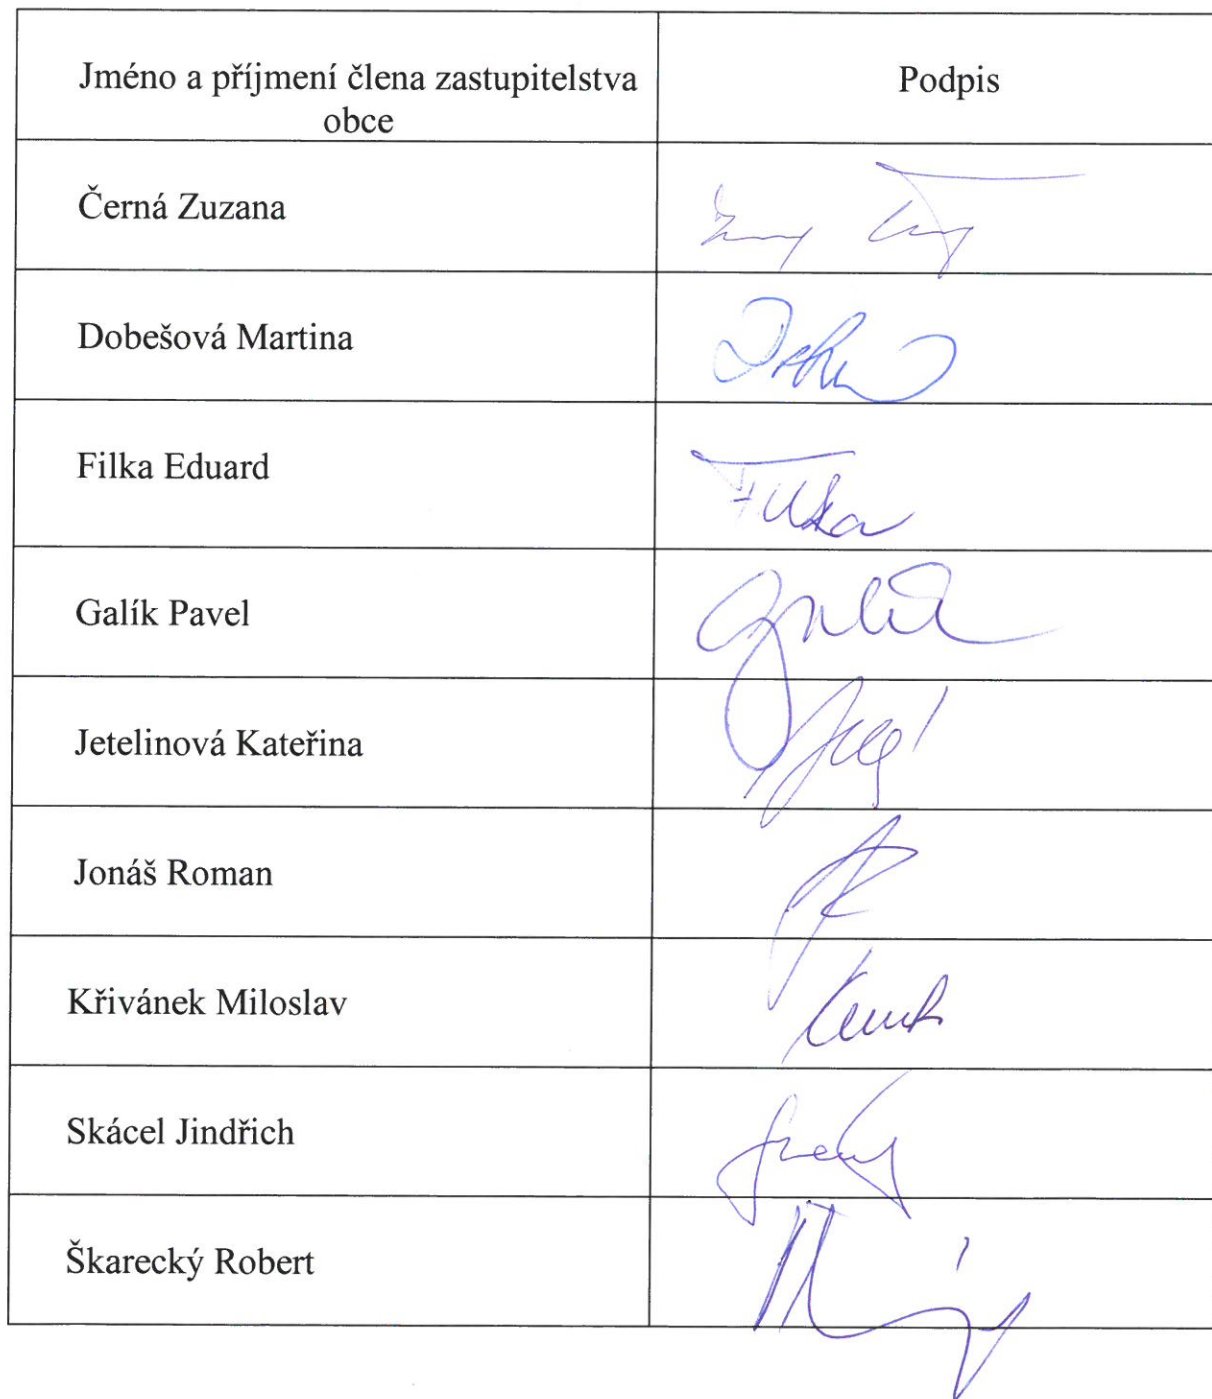 Jméno a příjmení člena zastupitelstva
obce
Podpis
Černá Zuzana
Dobešová Martina
Filka Eduard
Filka
Galík Pavel
Galík
Jetelinová Kateřina
Jonáš Roman
Křivánek Miloslav
Skácel Jindřich
Škarecký Robert